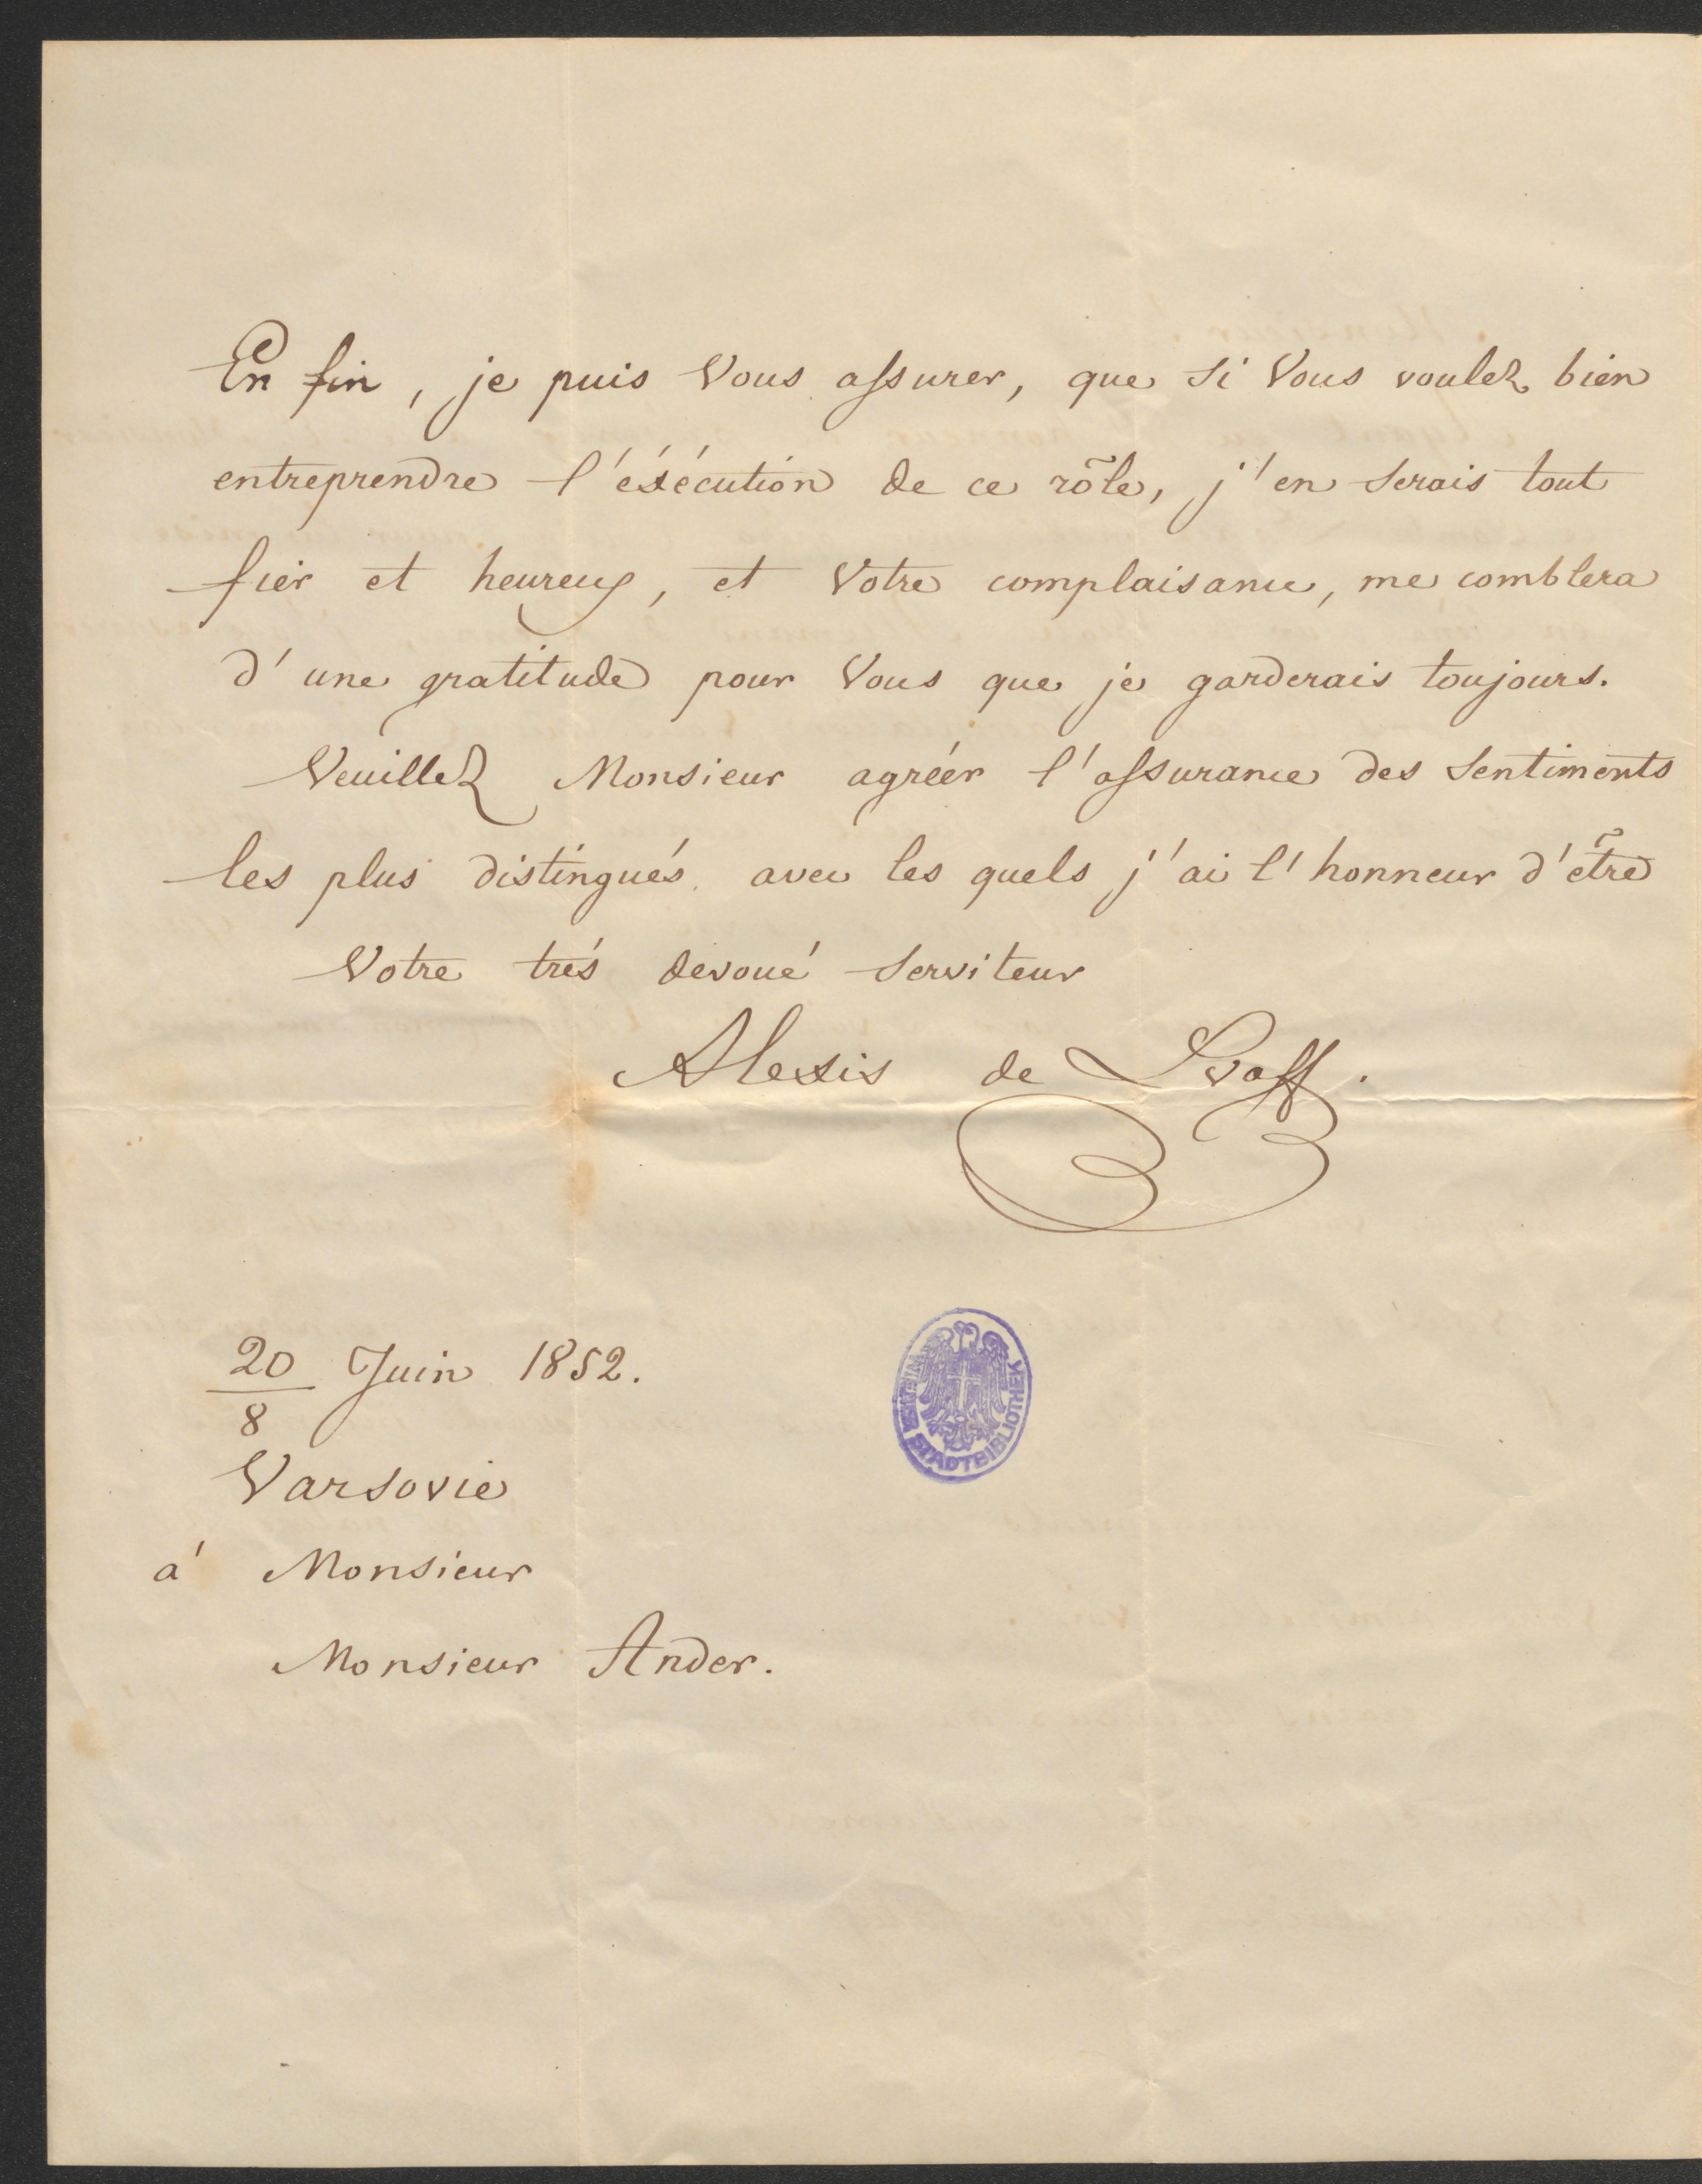 En fin, je puis Vous assurer, que si Vous voulez bien
entreprendre l'éxécution de ce rôle, j'en serais tout
fier et heureux, et Votre complaisance, me comblera
d'une gratitude pour Vous que je garderais toujours.
Veuillez Monsieur agréér l'assurance des sentiments
les plus distingués avec les quels j'ai l'honneur d'être
Votre trés devoué serviteur
Alexis de Lvoff.
20/8 Juin 1852.
WIENER STADTBIBLIOTHEK
Varsovie
á Monsieur
Monsieur Ander.